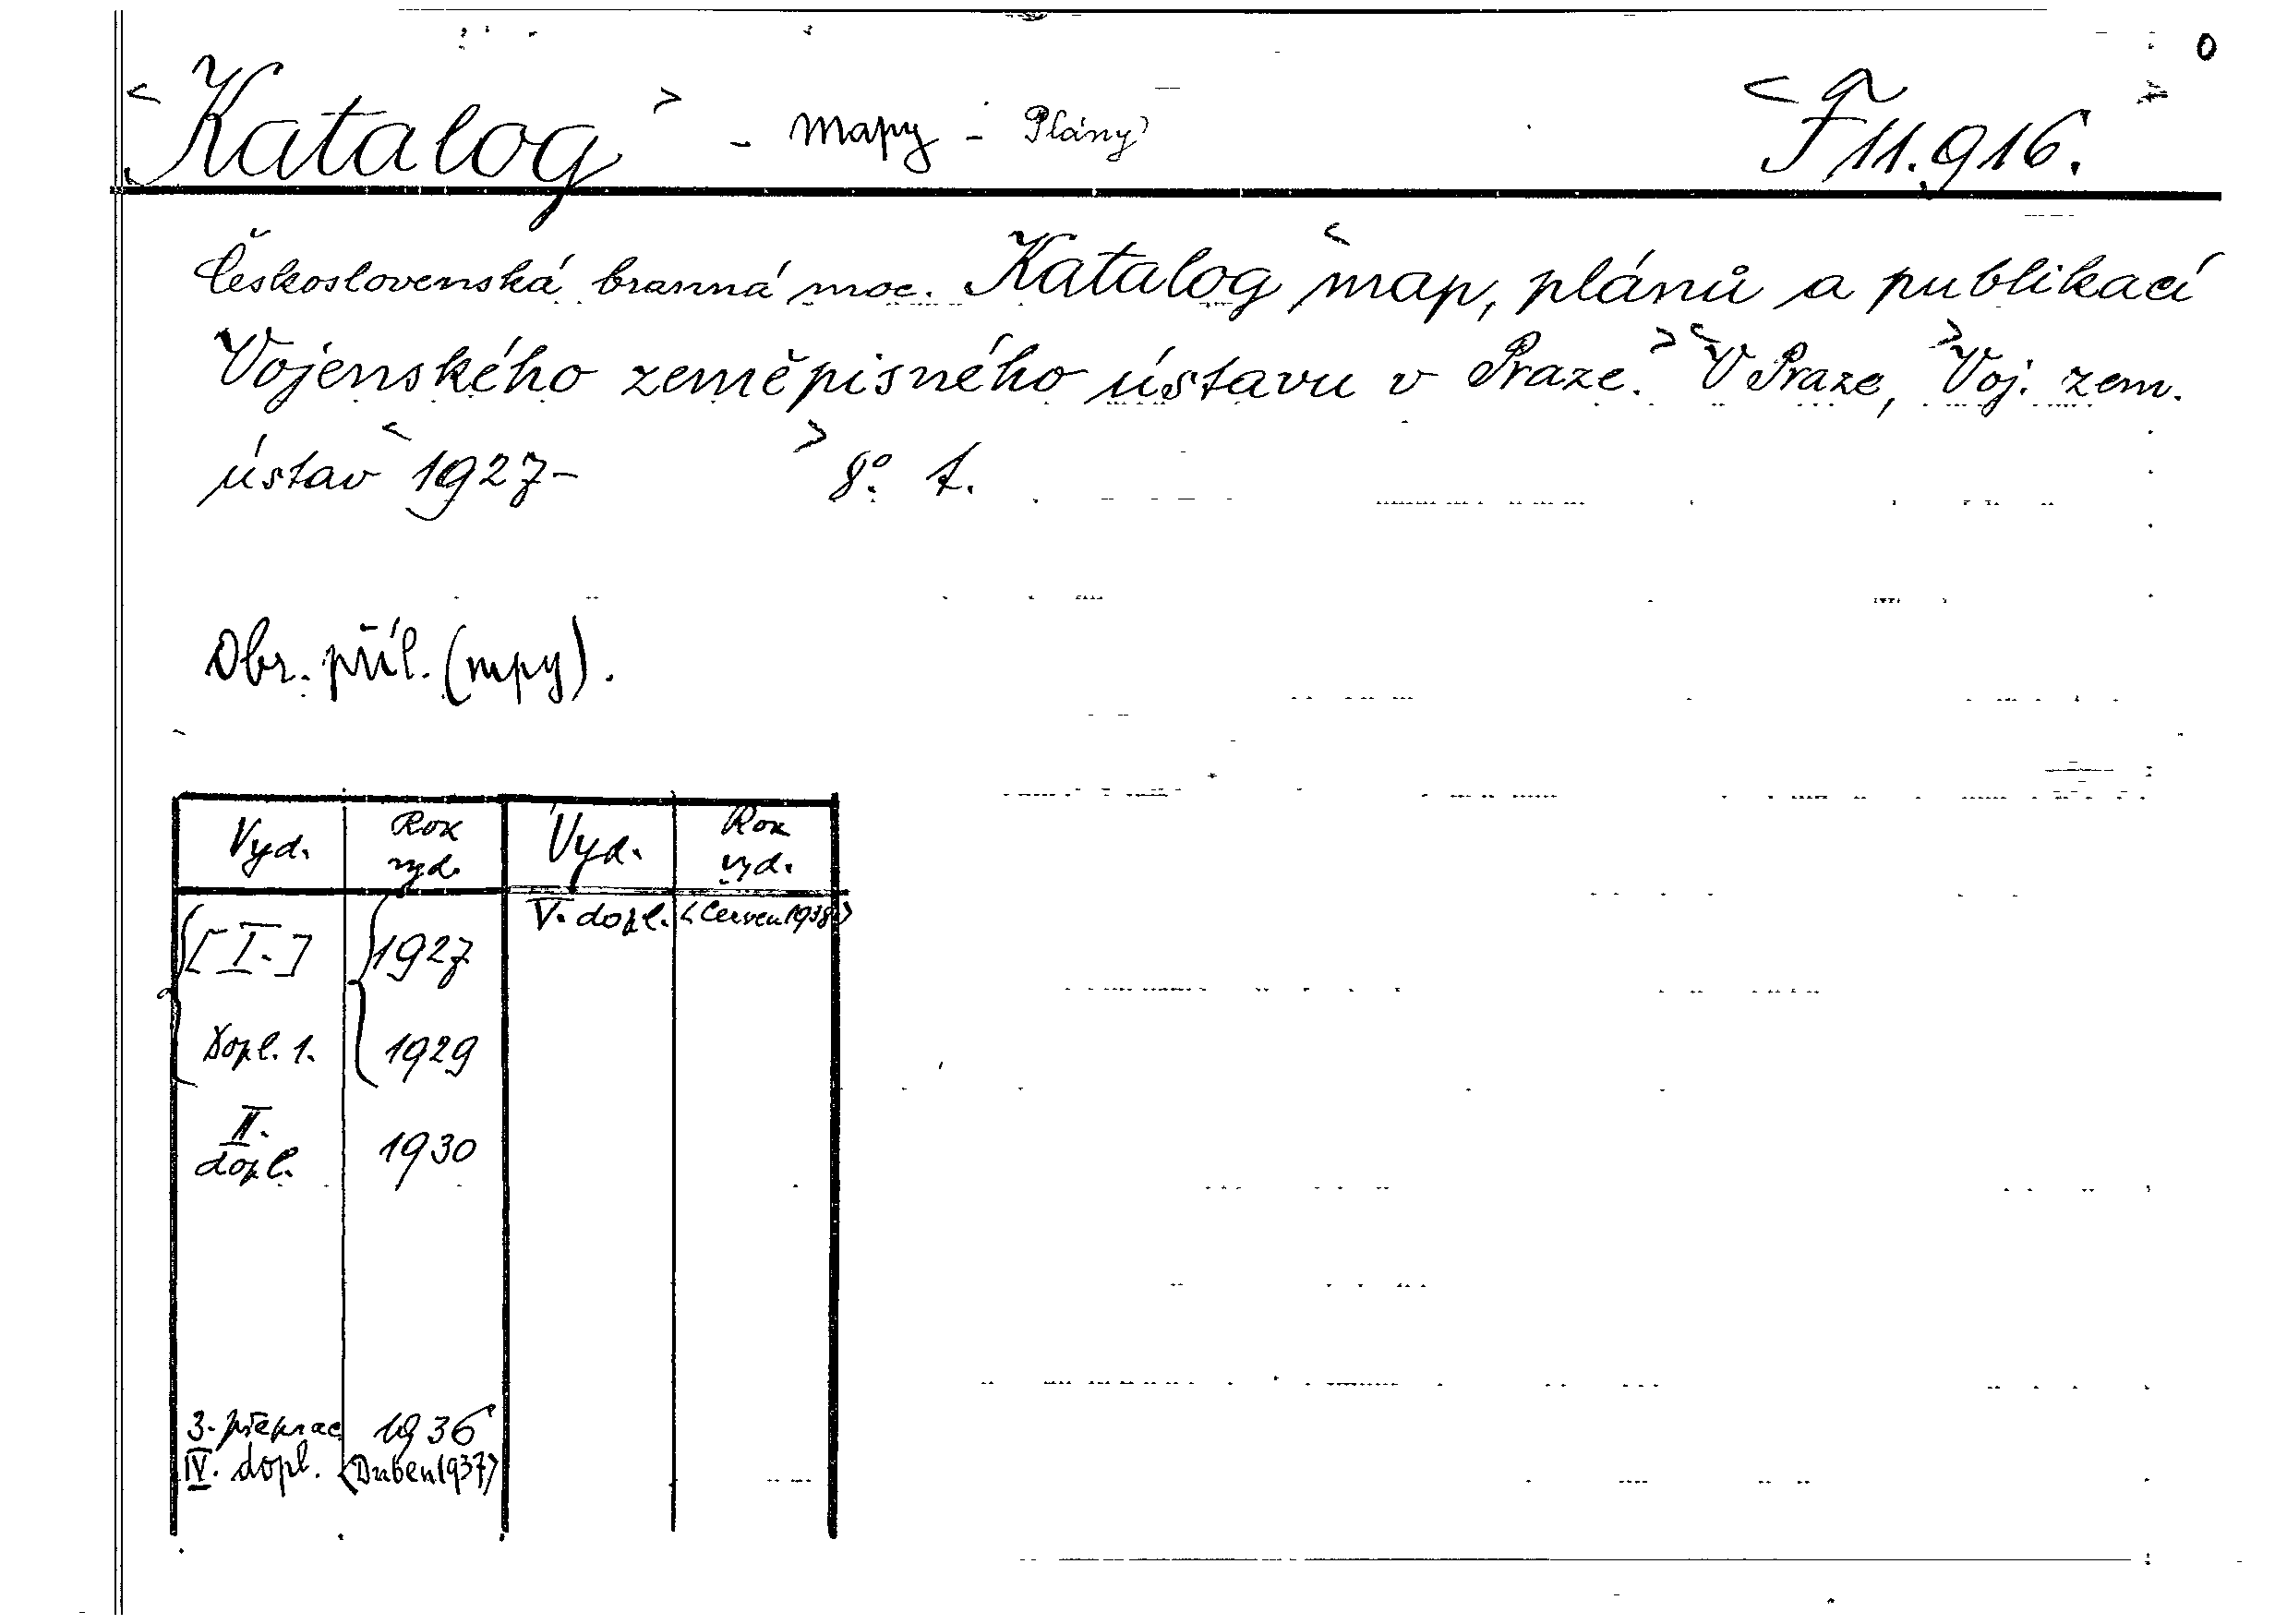 0
<Katalog> - Mapy - Plány <F 11.916.>
Československá branná moc. Katalog <map, plánů a publikací
Vojenského zeměpisného ústavu v Praze.> <V Praze,> Voj. zem.
ústav <1927- > 8°. t.
Obr. příl. (mpy).
Vyd. Rok vyd. Vyd. Rok vyd.
[I.] 1927 V. dopl. <Červen 1938>
Dopl. 1. 1929
II. dopl. 1930
3. přeprac 1936
IV. dopl. <Duben 1937>